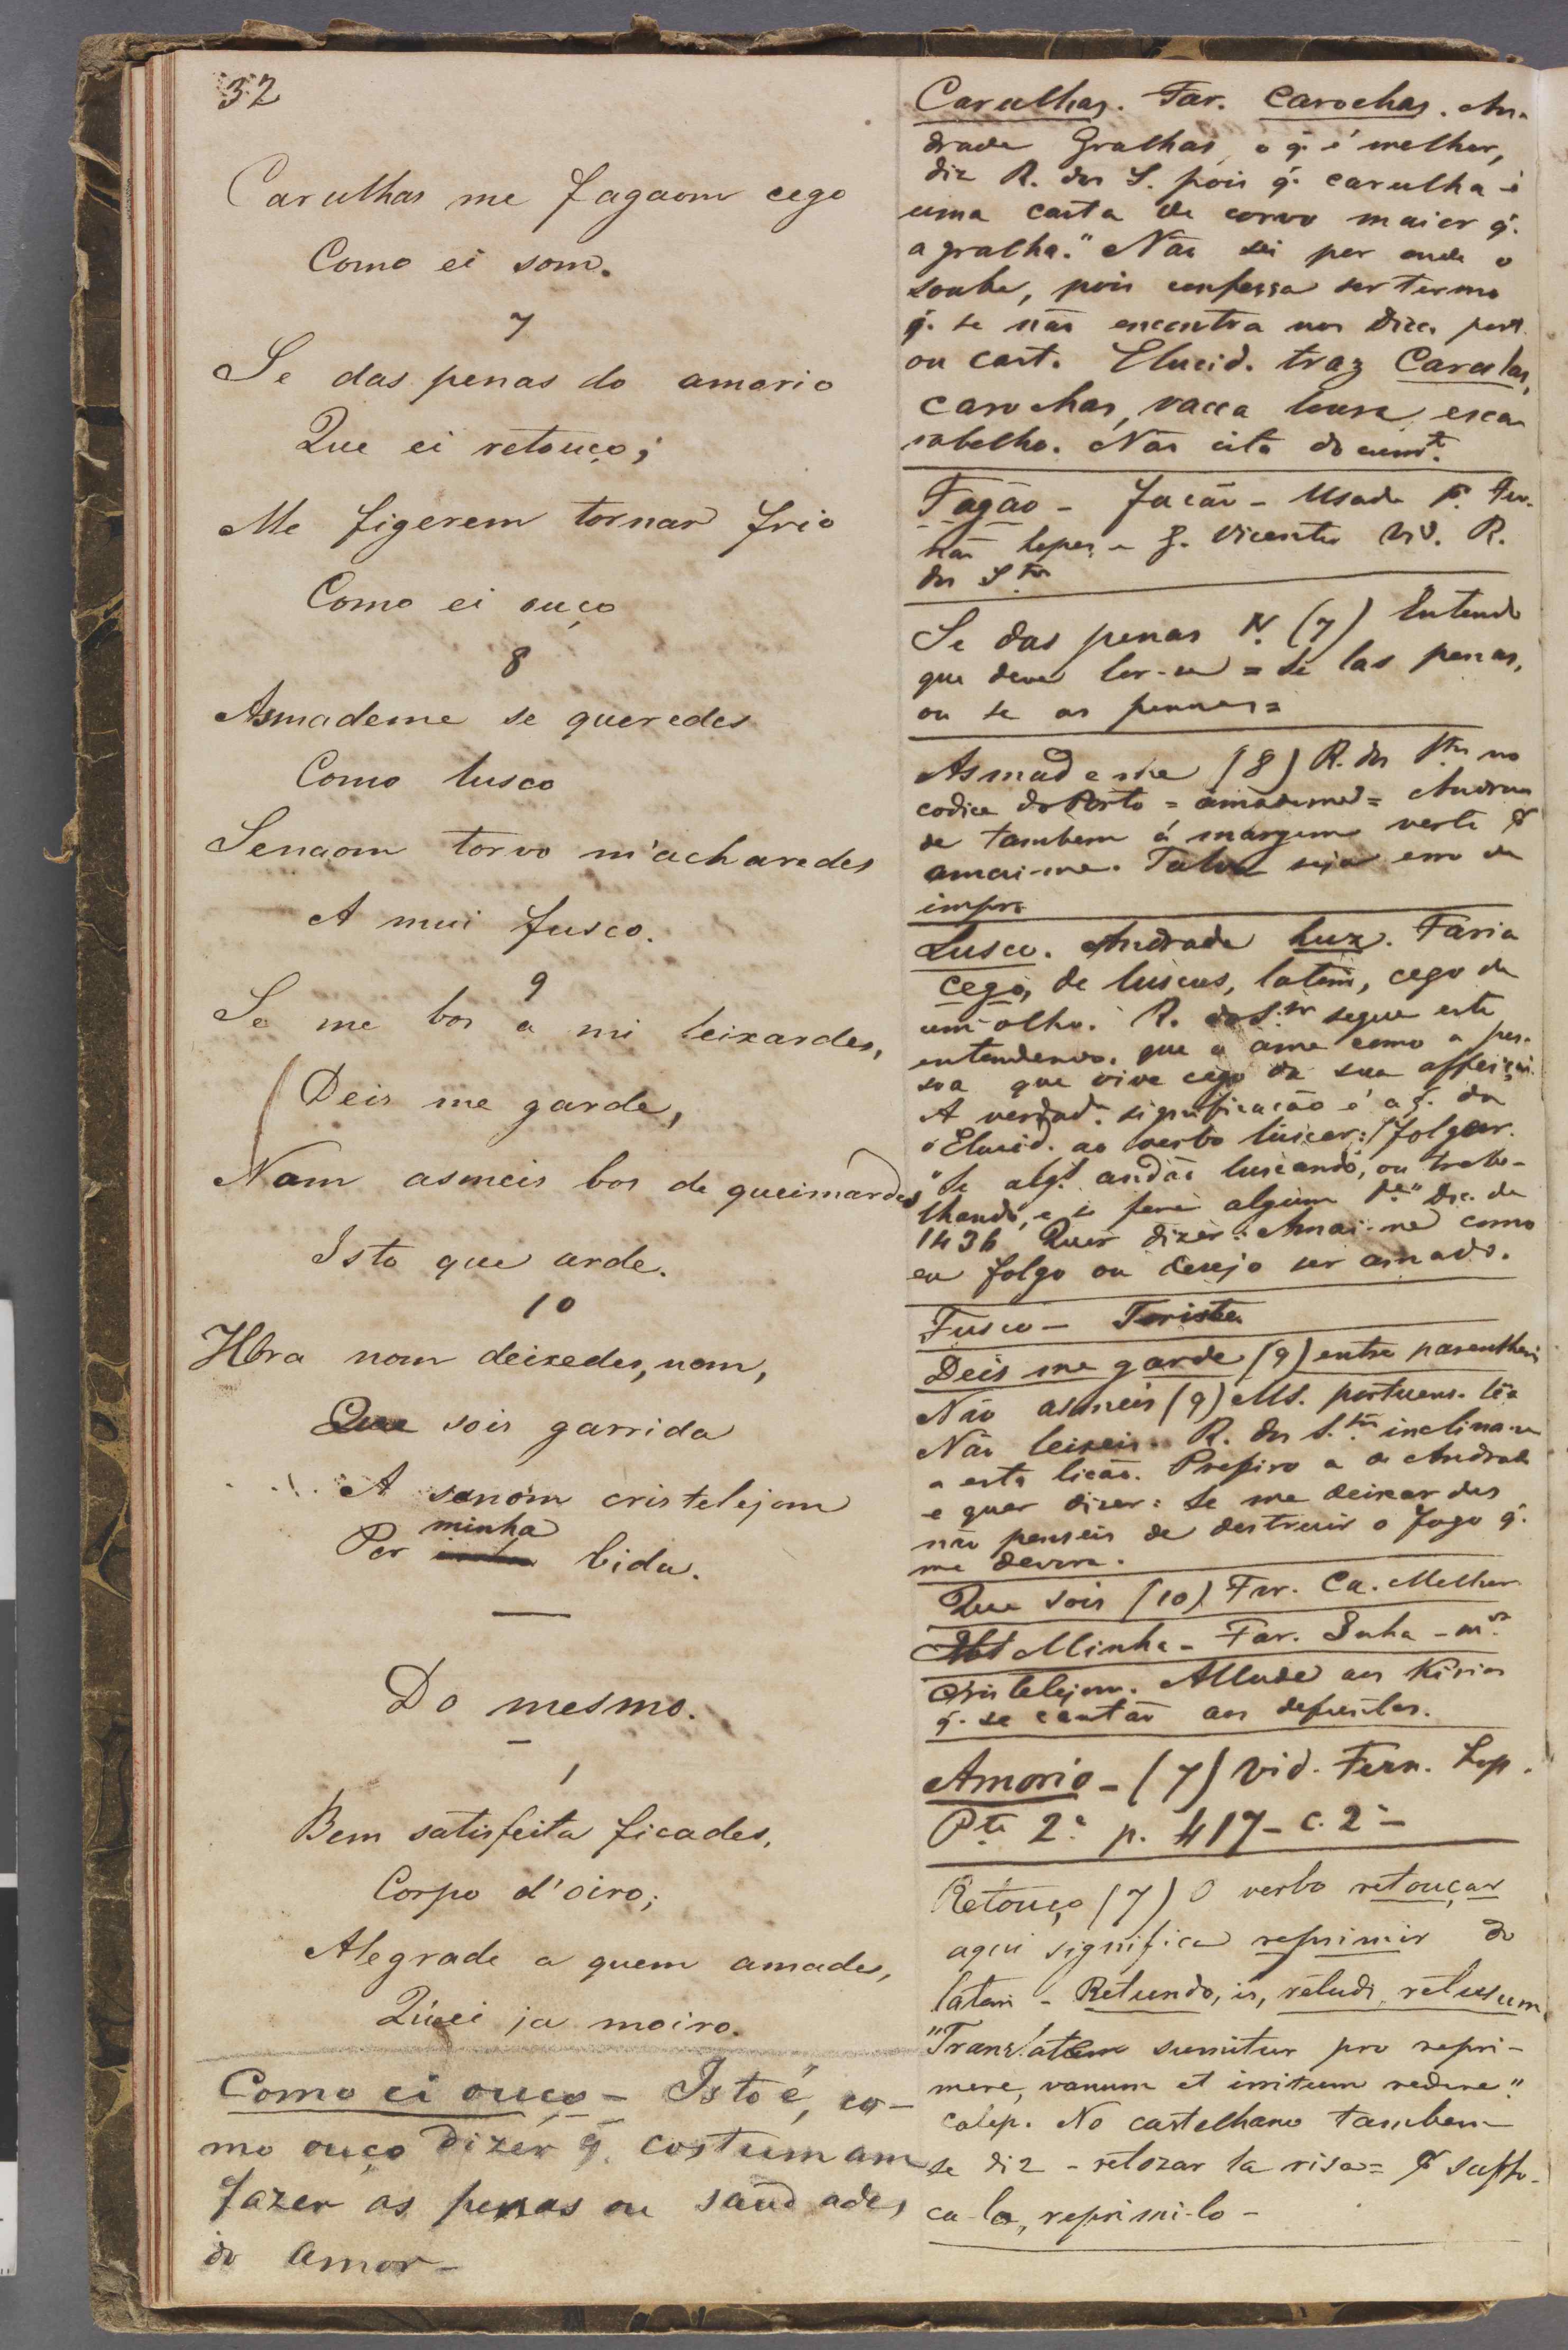 32
Carulhas me fagaom cego
Como ei som.
7
Se das penas do amorio
Que ei retouço;
Me figerem tornar frio
Como ei ouço
8
Asmademe se queredes
Como lusco
Senaom torvo m'acharedes
A mui fusco.
9
Se me bos a mi leixardes,
(Deis me garde,
Nam asmeis bos de queimardes
Isto que arde.
10
Hora nom deixedes, nom,
Que sois garrida
A senóm cristelejom
minha
Per bida.
Do mesmo.
1
Bem satisfeita ficades,
Corpo d'oiro;
Alegrade a quem amades,
Que ei ja moiro.
Como ei ouço – Isto é, co-
mo ouço dizer q. costumam
fazer as penas ou saudades
do amor –
Carulhas. Far. Carochas. An-
drade Gralhas, o q. é melhor,
diz R. dos S. pois q. carulha é
uma casta de corvo maior q.
a gralha." Não sei por onde o
soube, pois confessa ser termo
q. se não encontra nos Dicc. port.
ou cast. Elucid. traz Carulas,
carochas, vacca loura, esca-
rabelho. Não cita documt.
Fagão – facão – Usado p. Fer-
não Lopes – G. Vicente Vid. R.
dos Stos
Se das penas N. (7) Entendo
que deve ler-se = Se las penas,
ou se as pennas =
Asmademe (8) R. dos Stos no
codice do Porto = amademe = Andra-
de tambem á margem verte
amai-me. Talvez seja erro de
impr.
Lusco. Andrade luz. Faria
cego, de luscus, latim, cego de
um olho. R. dos Stos segue este
entendendo, que a ame como a pes-
soa que vive cego da sua affeição.
A verdad. significação é a q. da
o Elucid. ao verbo luscar: folgar.
"Se alg. andão luscando, ou traba-
lhando, e se fere algum Doc. de
1436 Quer dizer: Amai-me como
eu folgo ou desejo ser amado.
Fusco – Triste
Deis me garde (9) entre parenthesis
Não asmeis (9) Ms. portuens. lêa
Não leixeis. R. dos Stos inclina-se
a esta lição. Prefiro a de Andrade
e quer dizer: Se me deixardes
não penseis de destruir o fogo q.
me devora.
Que sois (10) Far. Ca. Melhor
Minha – Far. Inha – m.
Cristelejom. Allude aos Kirios
q. se cantão aos defuntos.
Amorio – (7) Vid. Fern. Lop.
Pte 2.ª p. 417 – c. 2.ª –
Retouço (7) O verbo retouçar
aqui significa reprimir do
latim – Retundo, is, retudi, retusum
"Translatem sumitur pro repri-
mere, vanum et irritum redere".
Calep. No castelhano tambem
se diz – retozar la risa = suffo-
ca-la, reprimi-lo –